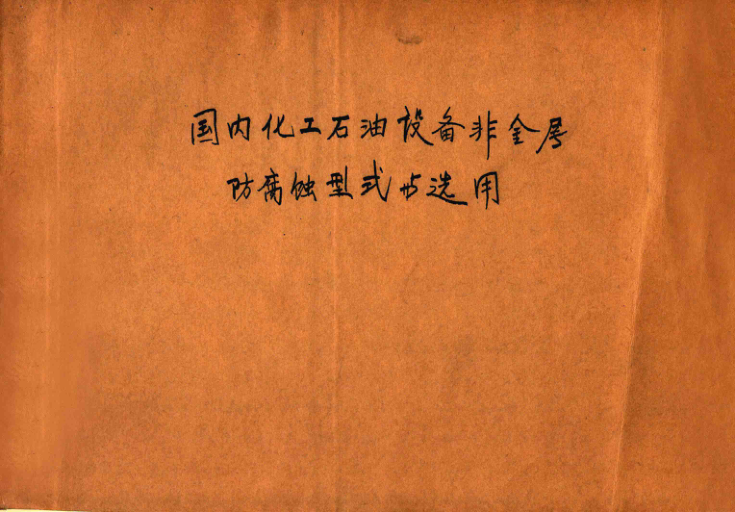 国内化工石油设备非金属
防腐蚀型式与选用